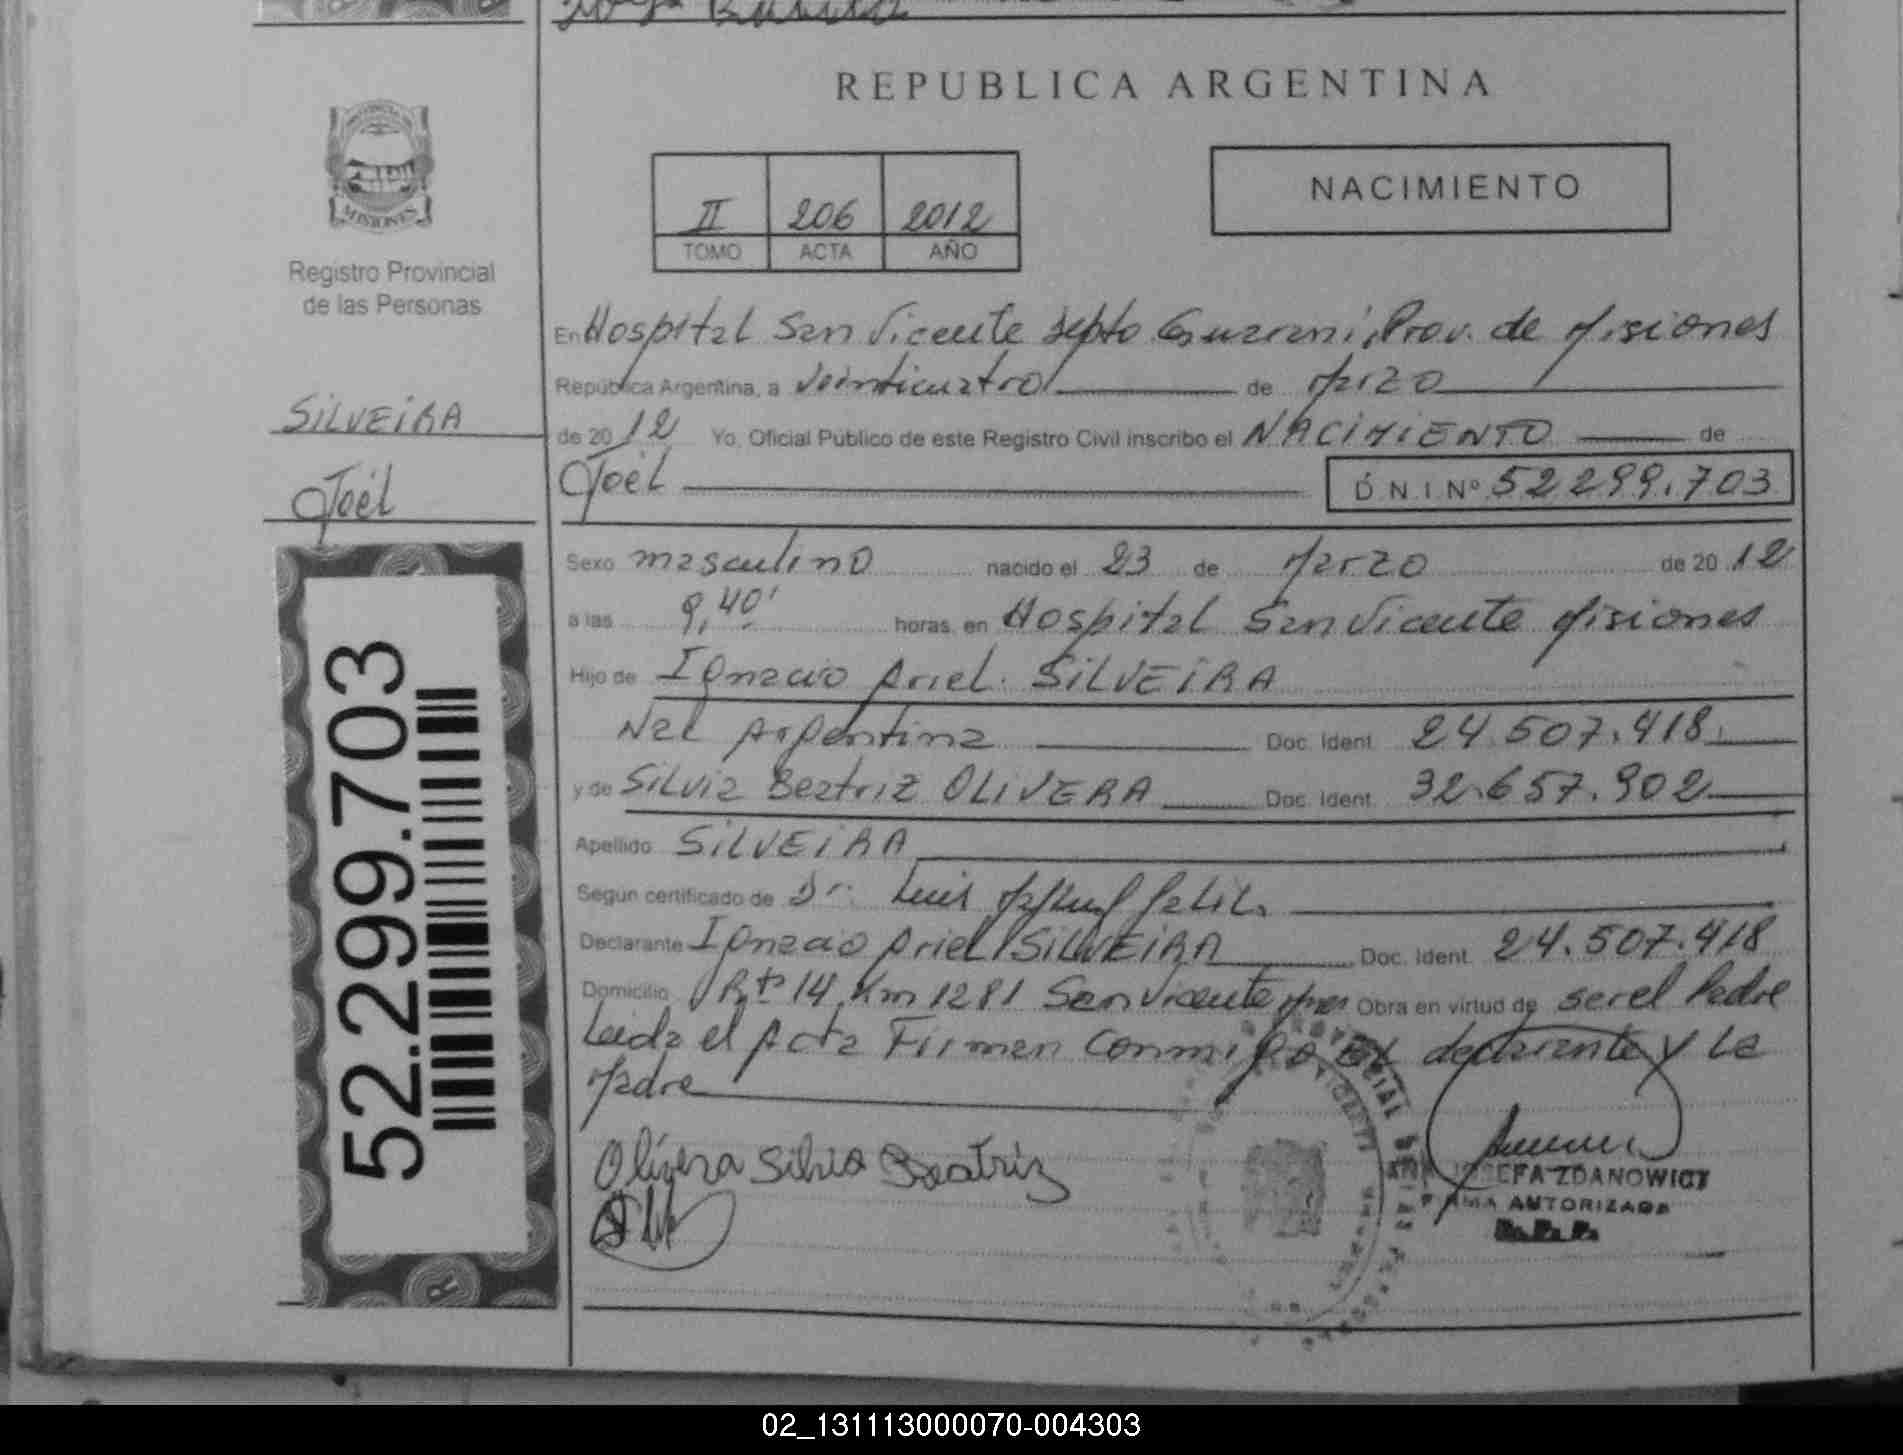 REPUBLICA ARGENTINA
PROVINCIA DE
MISIONES
Registro Provincial
de las Personas
SILVEIRA
Joél
52.299.703
II 206 2012
TOMO ACTA AÑO
NACIMIENTO
En Hospital San Vicente Depto Guarani, Prov. de Misiones
República Argentina, a Veinticuatro de Marzo
de 20 12 Yo, Oficial Público de este Registro Civil inscribo el NACIMIENTO de
Joél D N I Nº 52 299.703
Sexo masculino nacido el 23 de Marzo de 20 12
a las 9,40' horas, en Hospital San Vicente Misiones
Hijo de Ignacio Ariel SILVEIRA
Nac Argentina Doc. Ident. 24.507.418
y de Silvia Beatriz OLIVERA Doc. Ident. 32.657.902
Apellido SILVEIRA
Según certificado de Dr. Luis
Declarante Ignacio Ariel SILVEIRA Doc. Ident. 24.507.418
Domicilio Rta 14 Km 1281 San Vicente Mnes Obra en virtud de ser el Padre
Leida el Acta Firman Conmigo el declarante y la
Madre
Olivera Silvia Beatriz
JOSEFA ZDANOWICZ
FIRMA AUTORIZADA
R.P.P.
02_131113000070-004303